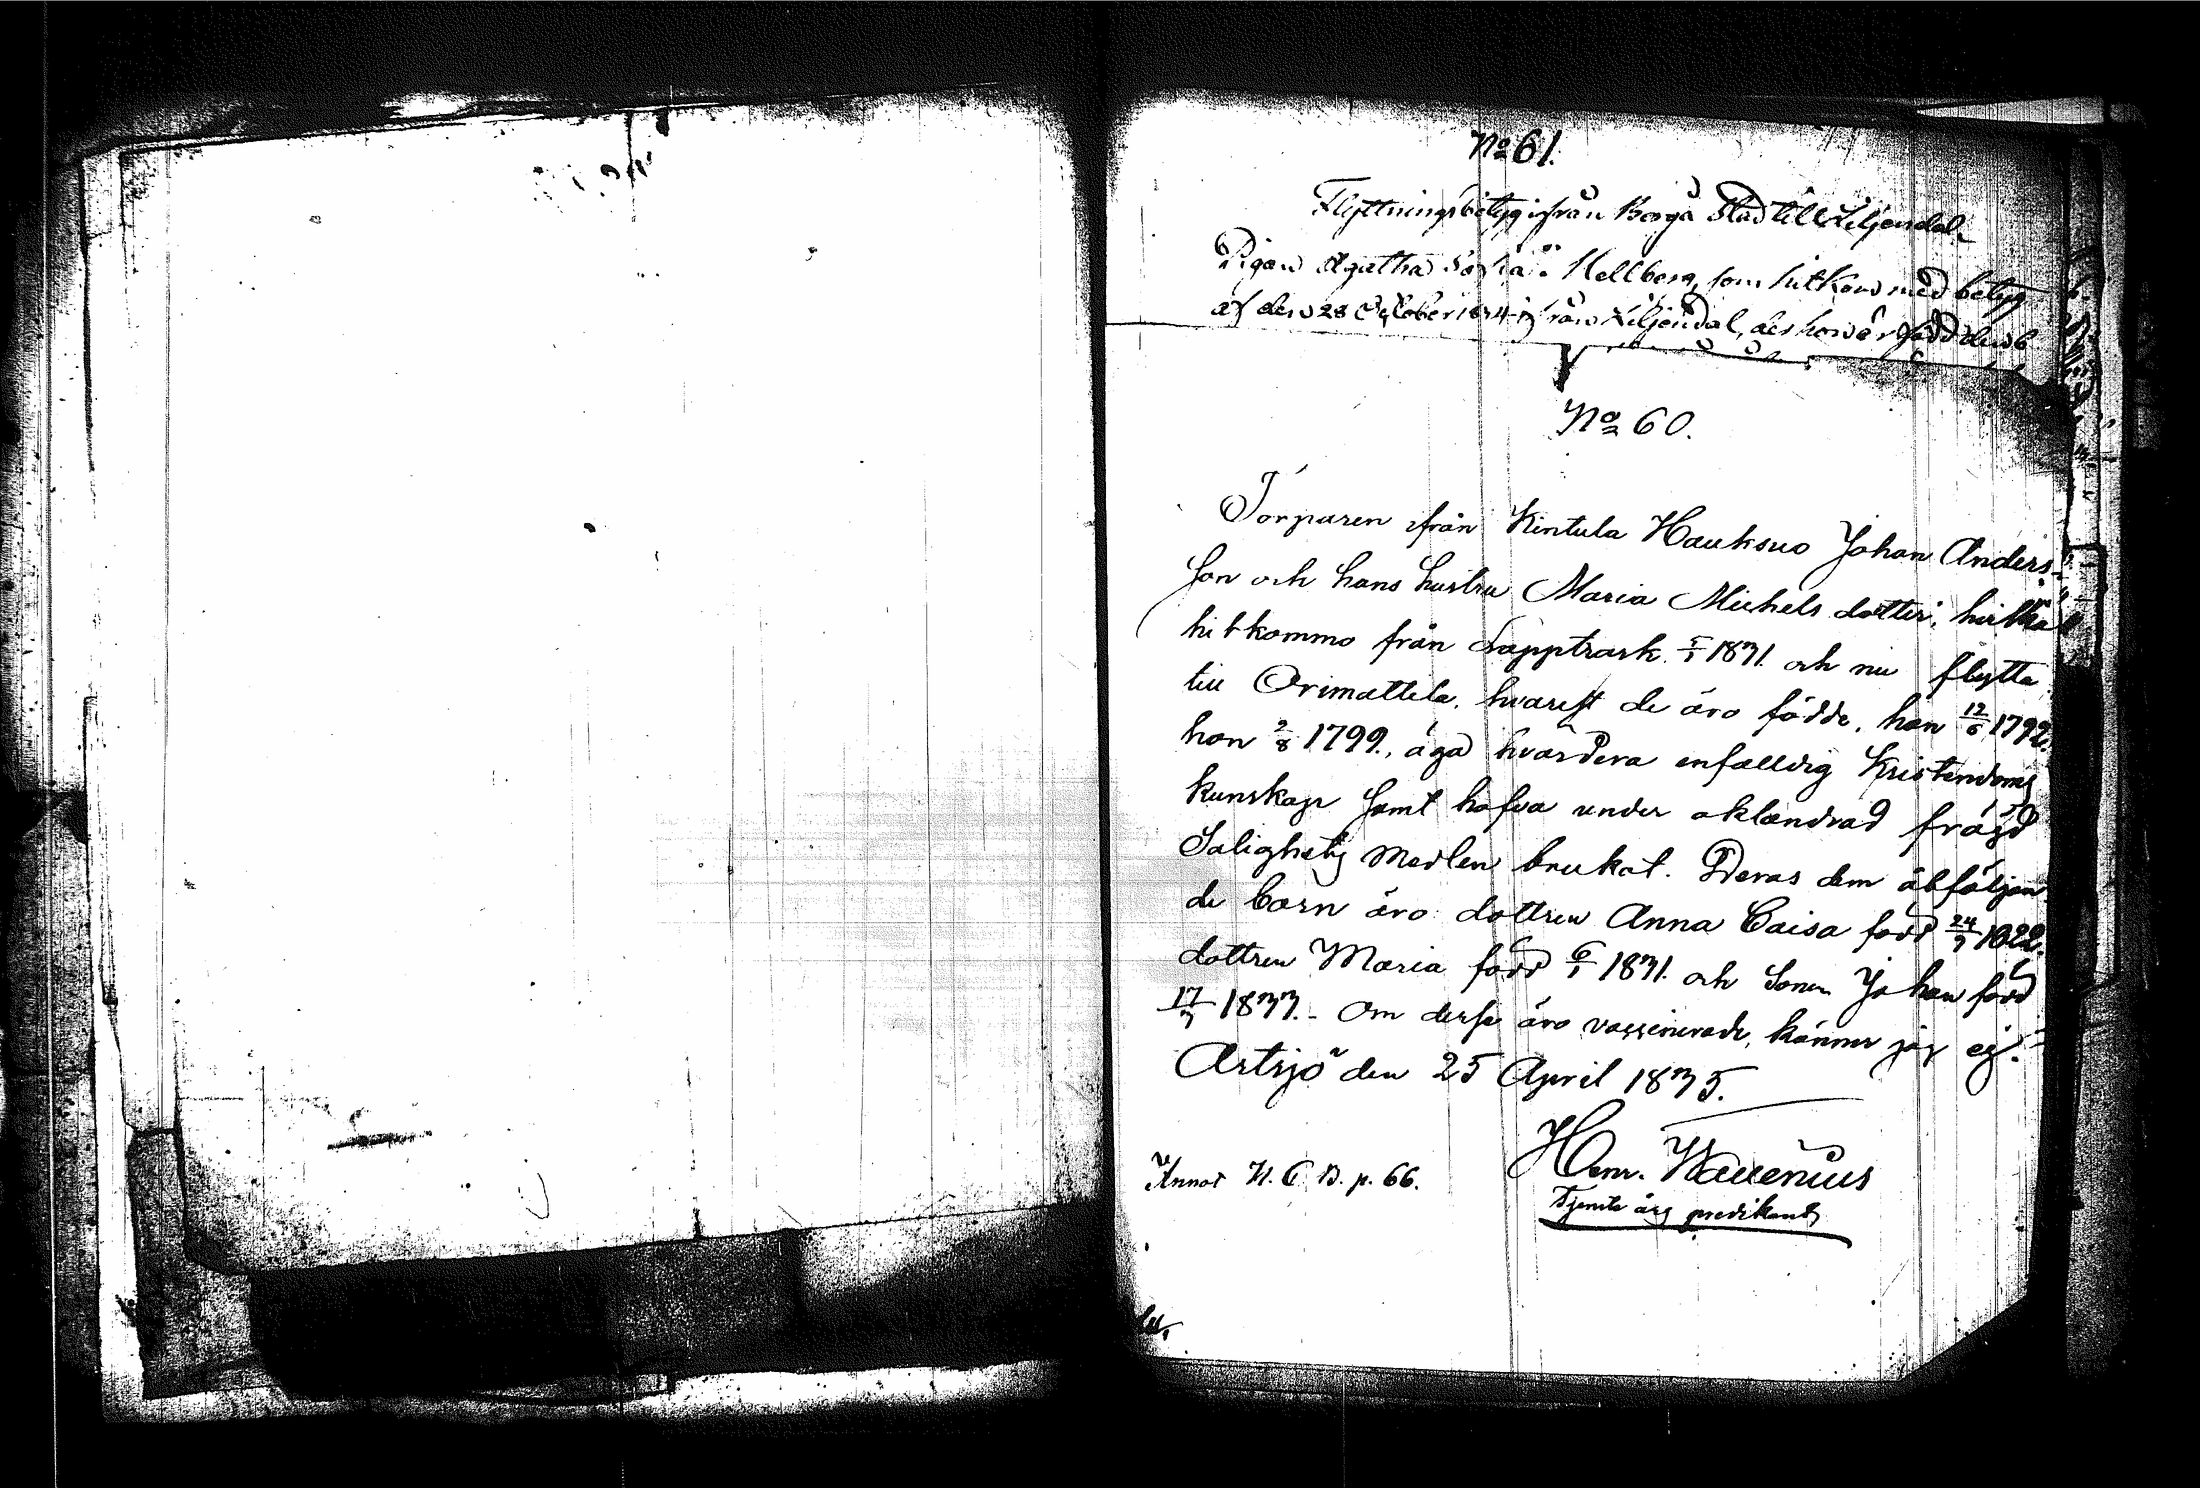 No 61.
Flyttningsbetyg ifrån Borgå Stad till Liljendal.
Pigan Agatha Sofia Hellberg, som hitkom med betyg
af den 28 October 1834 ifrån Liljendal, där hon är född den 6
No 60.
Torparen ifrån Kintula Hauksuo Johan Anders-
son och hans hustru Maria Michels dotter,
hitkommo från Lapptrask 1831. och nu flytta
till Orimattila, hvarest de äro födde, han 12/6 1792.
hon 2/8 1799., äga hvardera enfalldig Kristendoms
kunskap samt hafva under oklandrad frägd
Salighets medlen brukat. Deras dem åtföljan
de barn äro dottren Anna Caisa född 24/9
dottren Maria född 6/1 1831. och Sonen Johan född
17/3 1833. - Om desse äro vaccinerade, känner jag ej.
Artsjö den 25 April 1835.
Henr. Wallenius
Annot H. C. B. p. 66.
Tjenste predikant